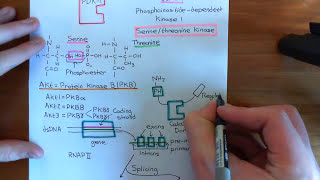 PDK1
Phosphoinositide-dependent
Kinase 1
Serine/threonine Kinase
Serine
Threonine
Phosphoester
Akt = Protein Kinase B (PKB)
Akt1 = PKBα
Akt2 = PKBβ
Akt3 = PKBγ
Coding
strand
dsDNA
gene
exons
introns
RNAP II
NH₂
PH
Regul
Splicing